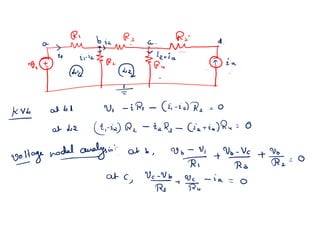 R₁ R₃ R₅
a b i₂ c d
i₁ i₁-i₂ R₂ i₂+iₐ R₄
V₁ L1 L2 iₐ
KVL at L1 V₁ - iR₁ - (i₁-i₂)R₂ = 0
at L2 (i₁-i₂)R₂ - i₂R₃ - (i₂+iₐ)R₄ = 0
Voltage nodal analysis: at b, (V_b - V₁)/R₁ + (V_b - V_c)/R₃ + V_b/R₂ = 0
at c, (V_c - V_b)/R₃ + V_c/R₄ - iₐ = 0